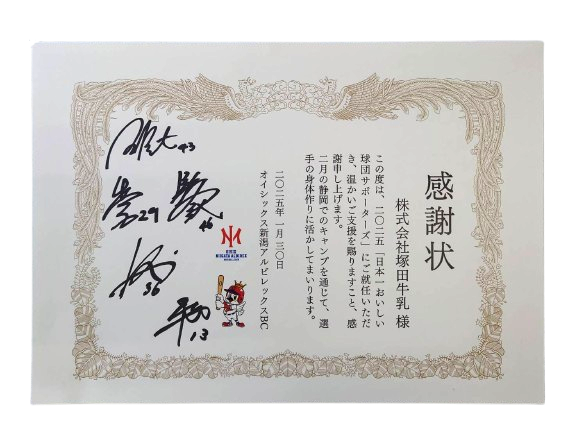 感謝状
株式会社塚田牛乳 様
この度は、二〇二五「日本一おいしい
球団サポーターズ」にご就任いただ
き、温かいご支援を賜りますこと、感
謝申し上げます。
二月の静岡でのキャンプを通じて、選
手の身体作りに活かしてまいります。
二〇二五年 一月 三〇日
オイシックス新潟アルビレックスBC
43
29
46
56
13
NIIGATA ALBIREX